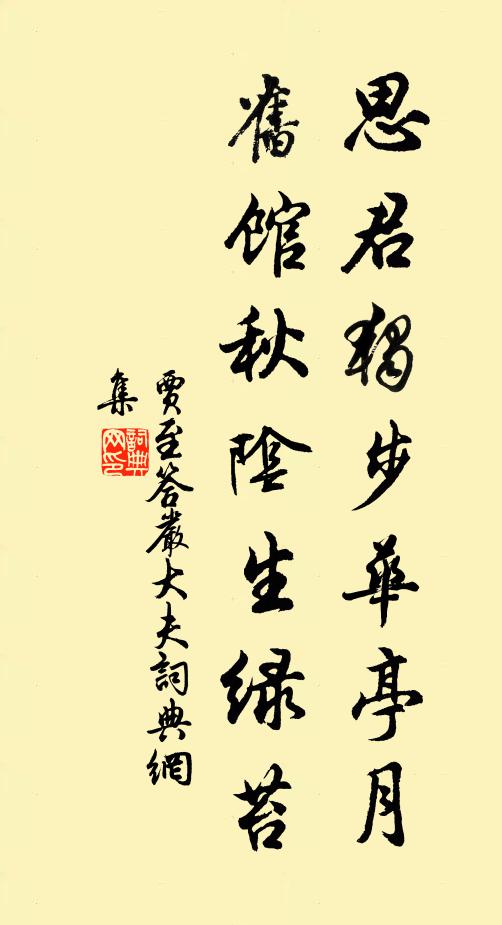 思君獨步華亭月
舊館秋陰生綠苔
賈至答嚴大夫詞典網
集
詞典
网印